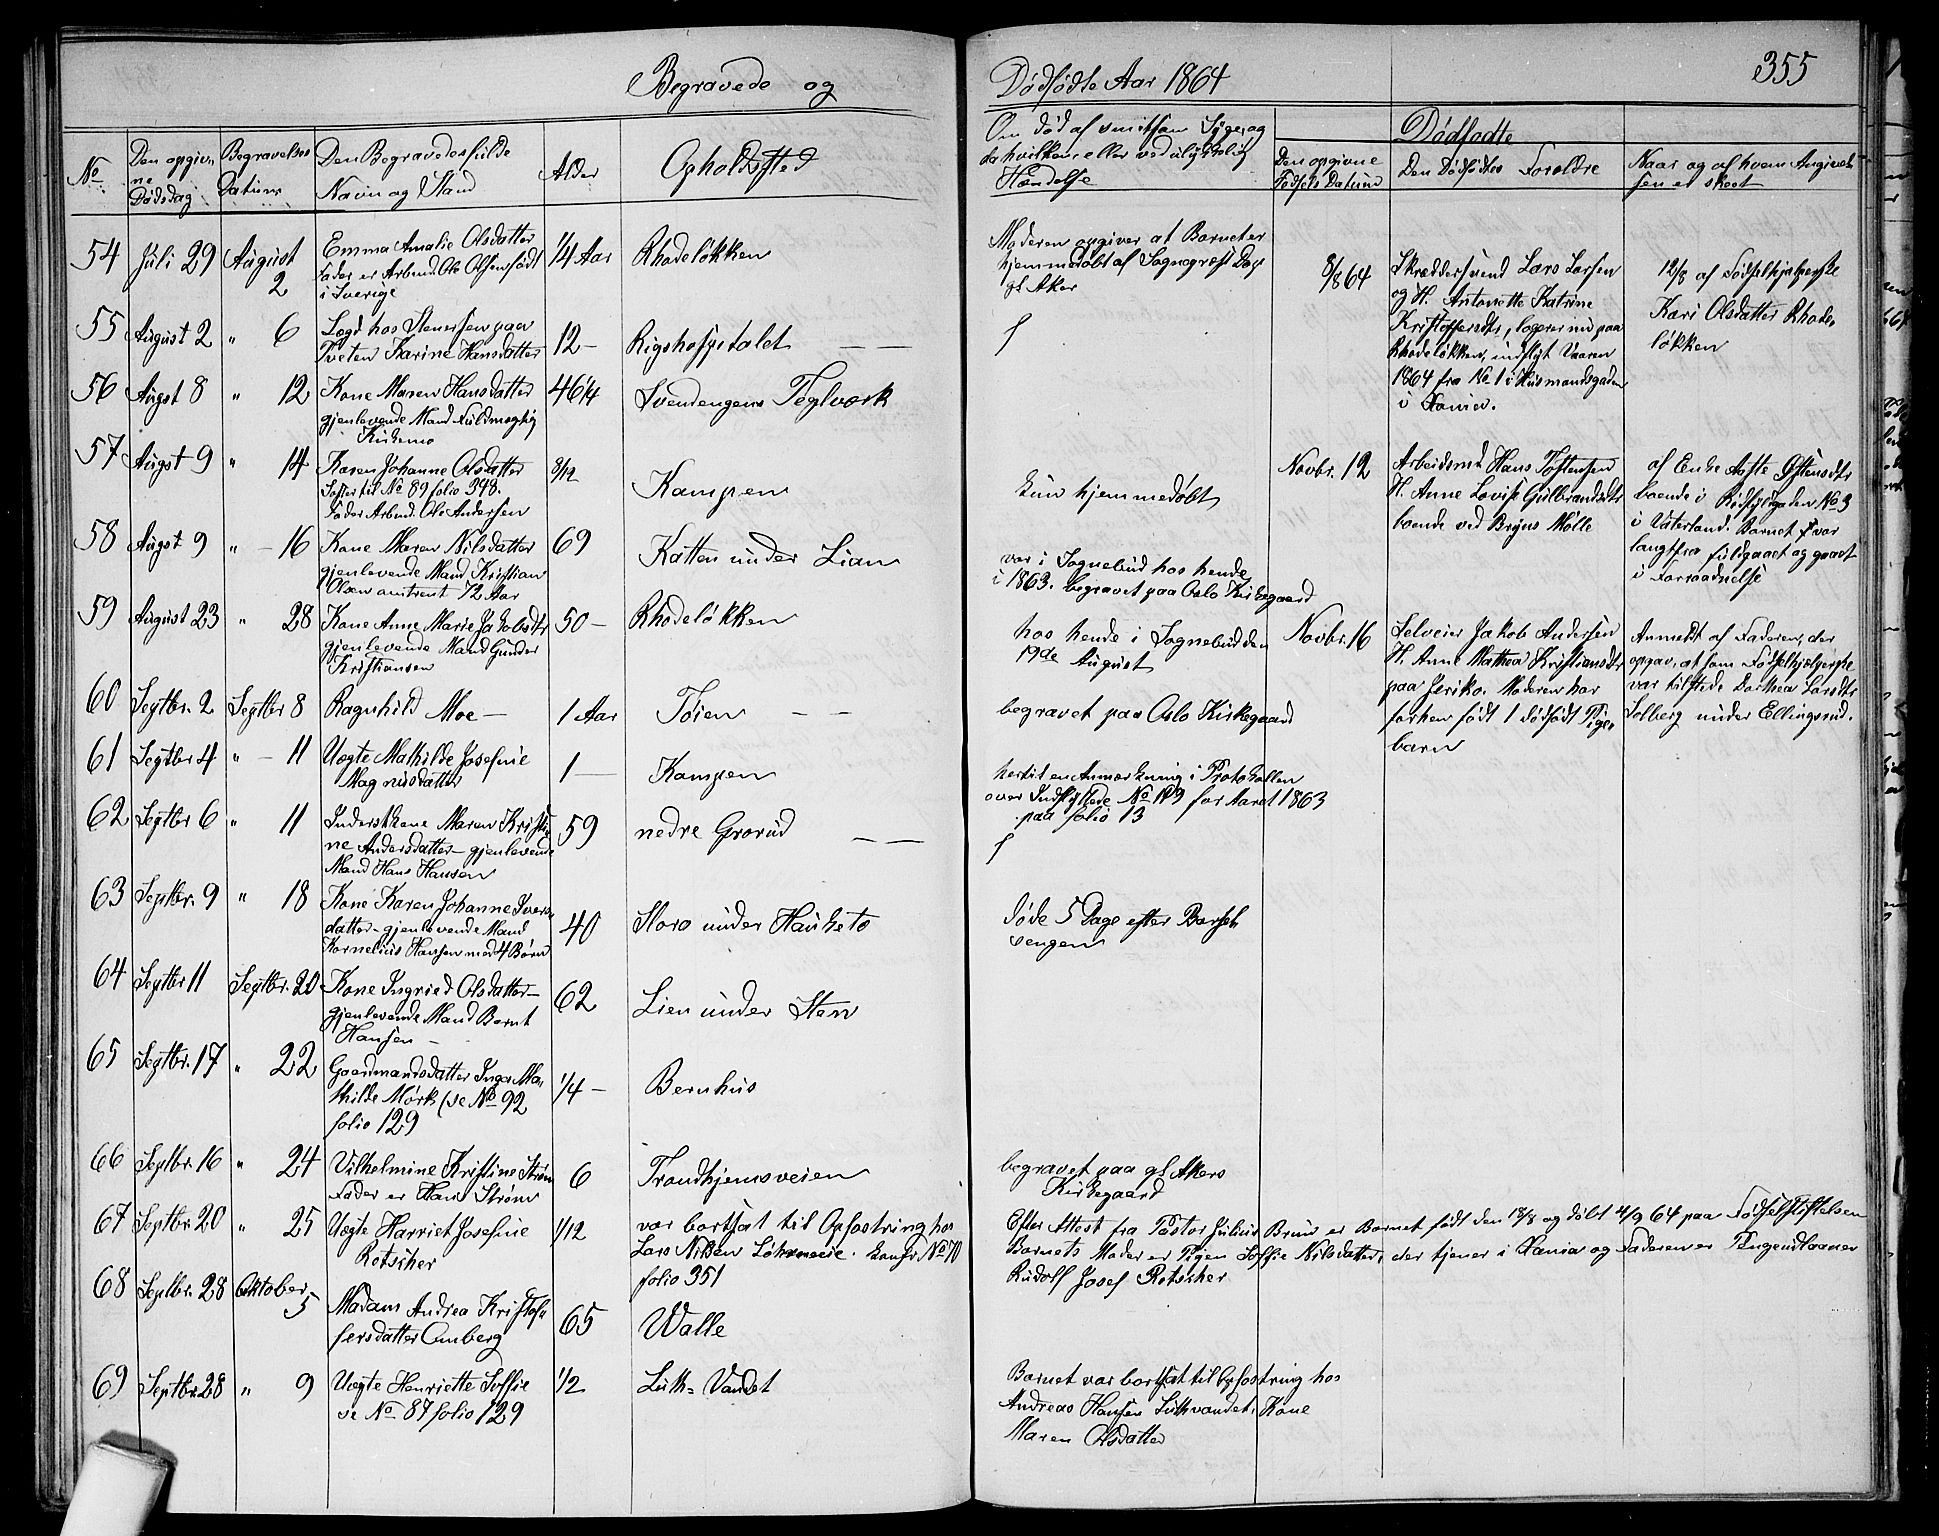 Begravede og
Dødfødte Aar 1864
355
No
Den opgivne Dødsdag
Begravelses Datum
Den Begravedes fulde Navn og Stand
Alder
Opholdssted
Om død af smitsom Syge, og da hvilken, eller ved ulykkelig Hændelse
Dødfødte
Den opgivne Fødsels Datum
Den Dødfødtes Forældre
Naar og af hvem Angivelsen er skeet
54 Juli 29 August 2
Emma Amalie Olsdatter
Fader er Arbmd Ole Olsen født
i Sverige
1/4 Aar
Rhodeløkken
Moderen opgiver at Barnet er
hjemmedøbt af Sognepræst
gl Aker
55 August 2 " 6
Lægd hos Stenersen paa
Tveten Karine Hansdatter
12 –
Rigshospitalet — —
56 Augst 8 " 12
Kone Maren Hansdatter
gjenlevende Mand Fuldmægtig
Kirkemo
46 1/4
Svendengens Teglværk
57 Augst 9 " 14
Karen Johanne Olsdatter
Søster til No 89 folio 348.
Fader Arbmd. Ole Andersen
8/12
Kampen
kun hjemmedøbt
58 Augst 9 " – 16
Kone Maren Nilsdatter
gjenlevende Mand Kristian
Olsen omtrent 72 Aar
69
Katten under Lian
var i Sognebud hos hende
i 1863. begravet paa Oslo Kirkegaard
59 August 23 " 28
Kone Anne Marie Jakobsdtr
gjenlevende Mand Gunder
Kristiansen
50 –
Rhodeløkken
hos hende i Sognebud den
19de August
60 Septbr. 2 Septbr 8
Ragnhild Moe –
1 Aar
Tøien — —
begravet paa Oslo Kirkegaard
61 Septbr 4 " – 11
Uægte Mathilde Josefine
Magnusdatter
1 —
Kampen
hertil en Anmærkning i Protokollen
over Indflyttede No 193 for Aaret 1863
paa folio 13
62 Septbr 6 " 11
Inderstkone Maren Kristi-
ne Andersdatter – gjenlevende
Mand Hans Hansen
59
nedre Grorud — —
63 Septbr. 9 " 18
Kone Karen Johanne Ivers-
datter – gjenlevende Mand
Kornelius Hansen med 4 Børn
40
Storo under Hauketo
døde 5 Dage efter Barsel-
sengen
64 Septbr 11 Septbr. 20
Kone Ingried Olsdatter –
gjenlevende Mand Bernt
Hansen –
62
Lien under Sten
65 Septbr. 17 " 22
Gaardmandsdatter Inger Ma-
thilde Mørk (se No 92
folio 129
1/4 –
Bernhus
66 Septbr. 16 " 24
Vilhelmine Kristine Strøm
Fader er Hans Strøm
6
Trondhjemsveien
begravet paa gl Akers
Kirkegaard
67 Septbr. 20 " 25
Uægte Harriet Josefine
Rotscher
1/12
var bortsat til Opfostring hos
Lars Nilsen konfr. No 70
folio 351
Efter Attest fra Pastor Julius Bruun er Barnet født den 18/8 og døbt 4/9 64 paa Fødselsstiftelsen
Barnets Moder er Pigen Soffie Nilsdatter, der tjener i Xania og Faderen er
Rudolf Josef Rotscher
68 Septbr. 28 Oktober 5
Madam Andrea Kristof-
fersdatter Omberg
65
Walle
69 Septbr. 28 " 9
Uægte Henriette Soffie
se No 87 folio 129
1/2
Luth-Vandet
Barnet var bortsat til Opfostring hos
Andreas Hansen Luthvandet, Kone
Maren Olsdatter
8/8 64
Skræddersvend Lars Larsen
og H. Antonette Katrine
Kristoffersdtr, logerer nu paa
Rhodeløkken, indflyt Vaaren
1864 fra No 1 i Husmandsgaden
i Xania.
12/8 af Fødselhjelperske
Kari Olsdatter Rhode-
løkken
Novbr. 12
Arbeidsmd Hans Tostensen
H. Anne Lovise Gulbrandsdtr
boende ved Bryns Mølle
af Enke Aaste Østensdtr
boende i Rødfyldgaden No 3
i Vaterland. Barnet var
langtfra fuldgaaet og gaaet
i Forraadnelse
Novbr. 16
Selveier Jakob Andersen
H. Anne Mathea Kristiansdtr
paa Jeriko. Moderen har
forhen født 1 dødfødt Pige-
barn
Anmeldt af Faderen, der
opgav, at som Fødselhjelperske
var tilstede Dorthea Larsdtr
Solberg under Ellingsrud.